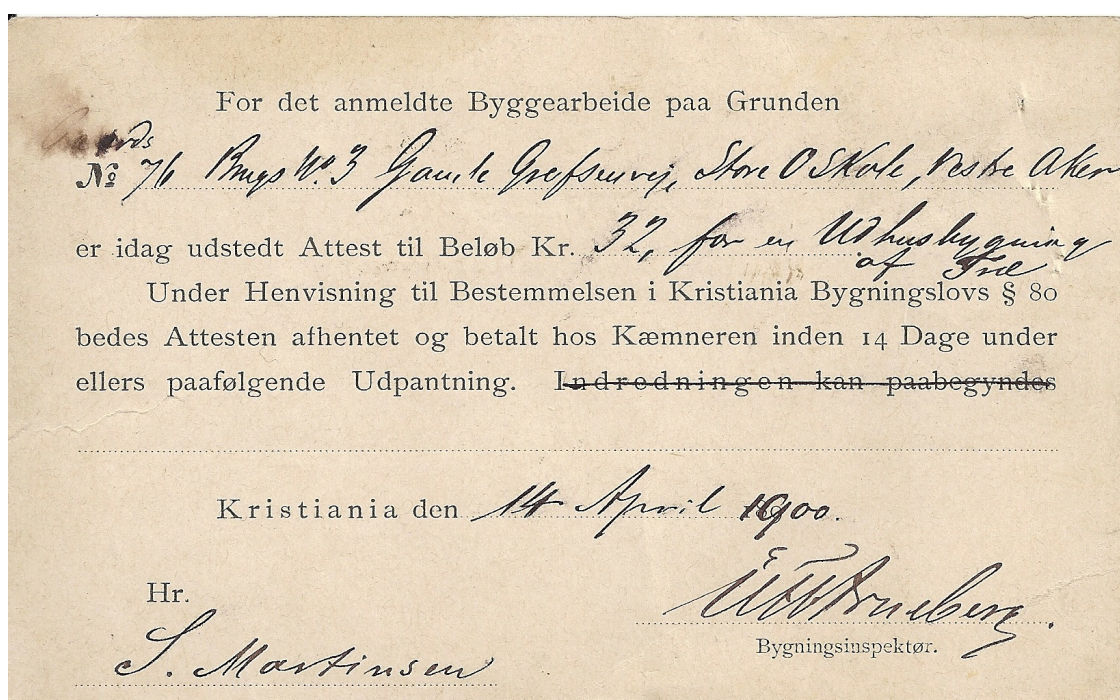 For det anmeldte Byggearbeide paa Grunden
Gaards
№ 76 Brugs No. 3 Gamle Grefsenvej, Store O Skole, Vestre Aker
er idag udstedt Attest til Beløb Kr. 32, for en Udhusbygning
af Træ
Under Henvisning til Bestemmelsen i Kristiania Bygningslovs § 80
bedes Attesten afhentet og betalt hos Kæmneren inden 14 Dage under
ellers paafølgende Udpantning. Indredningen kan paabegyndes
Kristiania den 14 April 1900.
Hr.
Arneberg.
Bygningsinspektør.
S. Martinsen